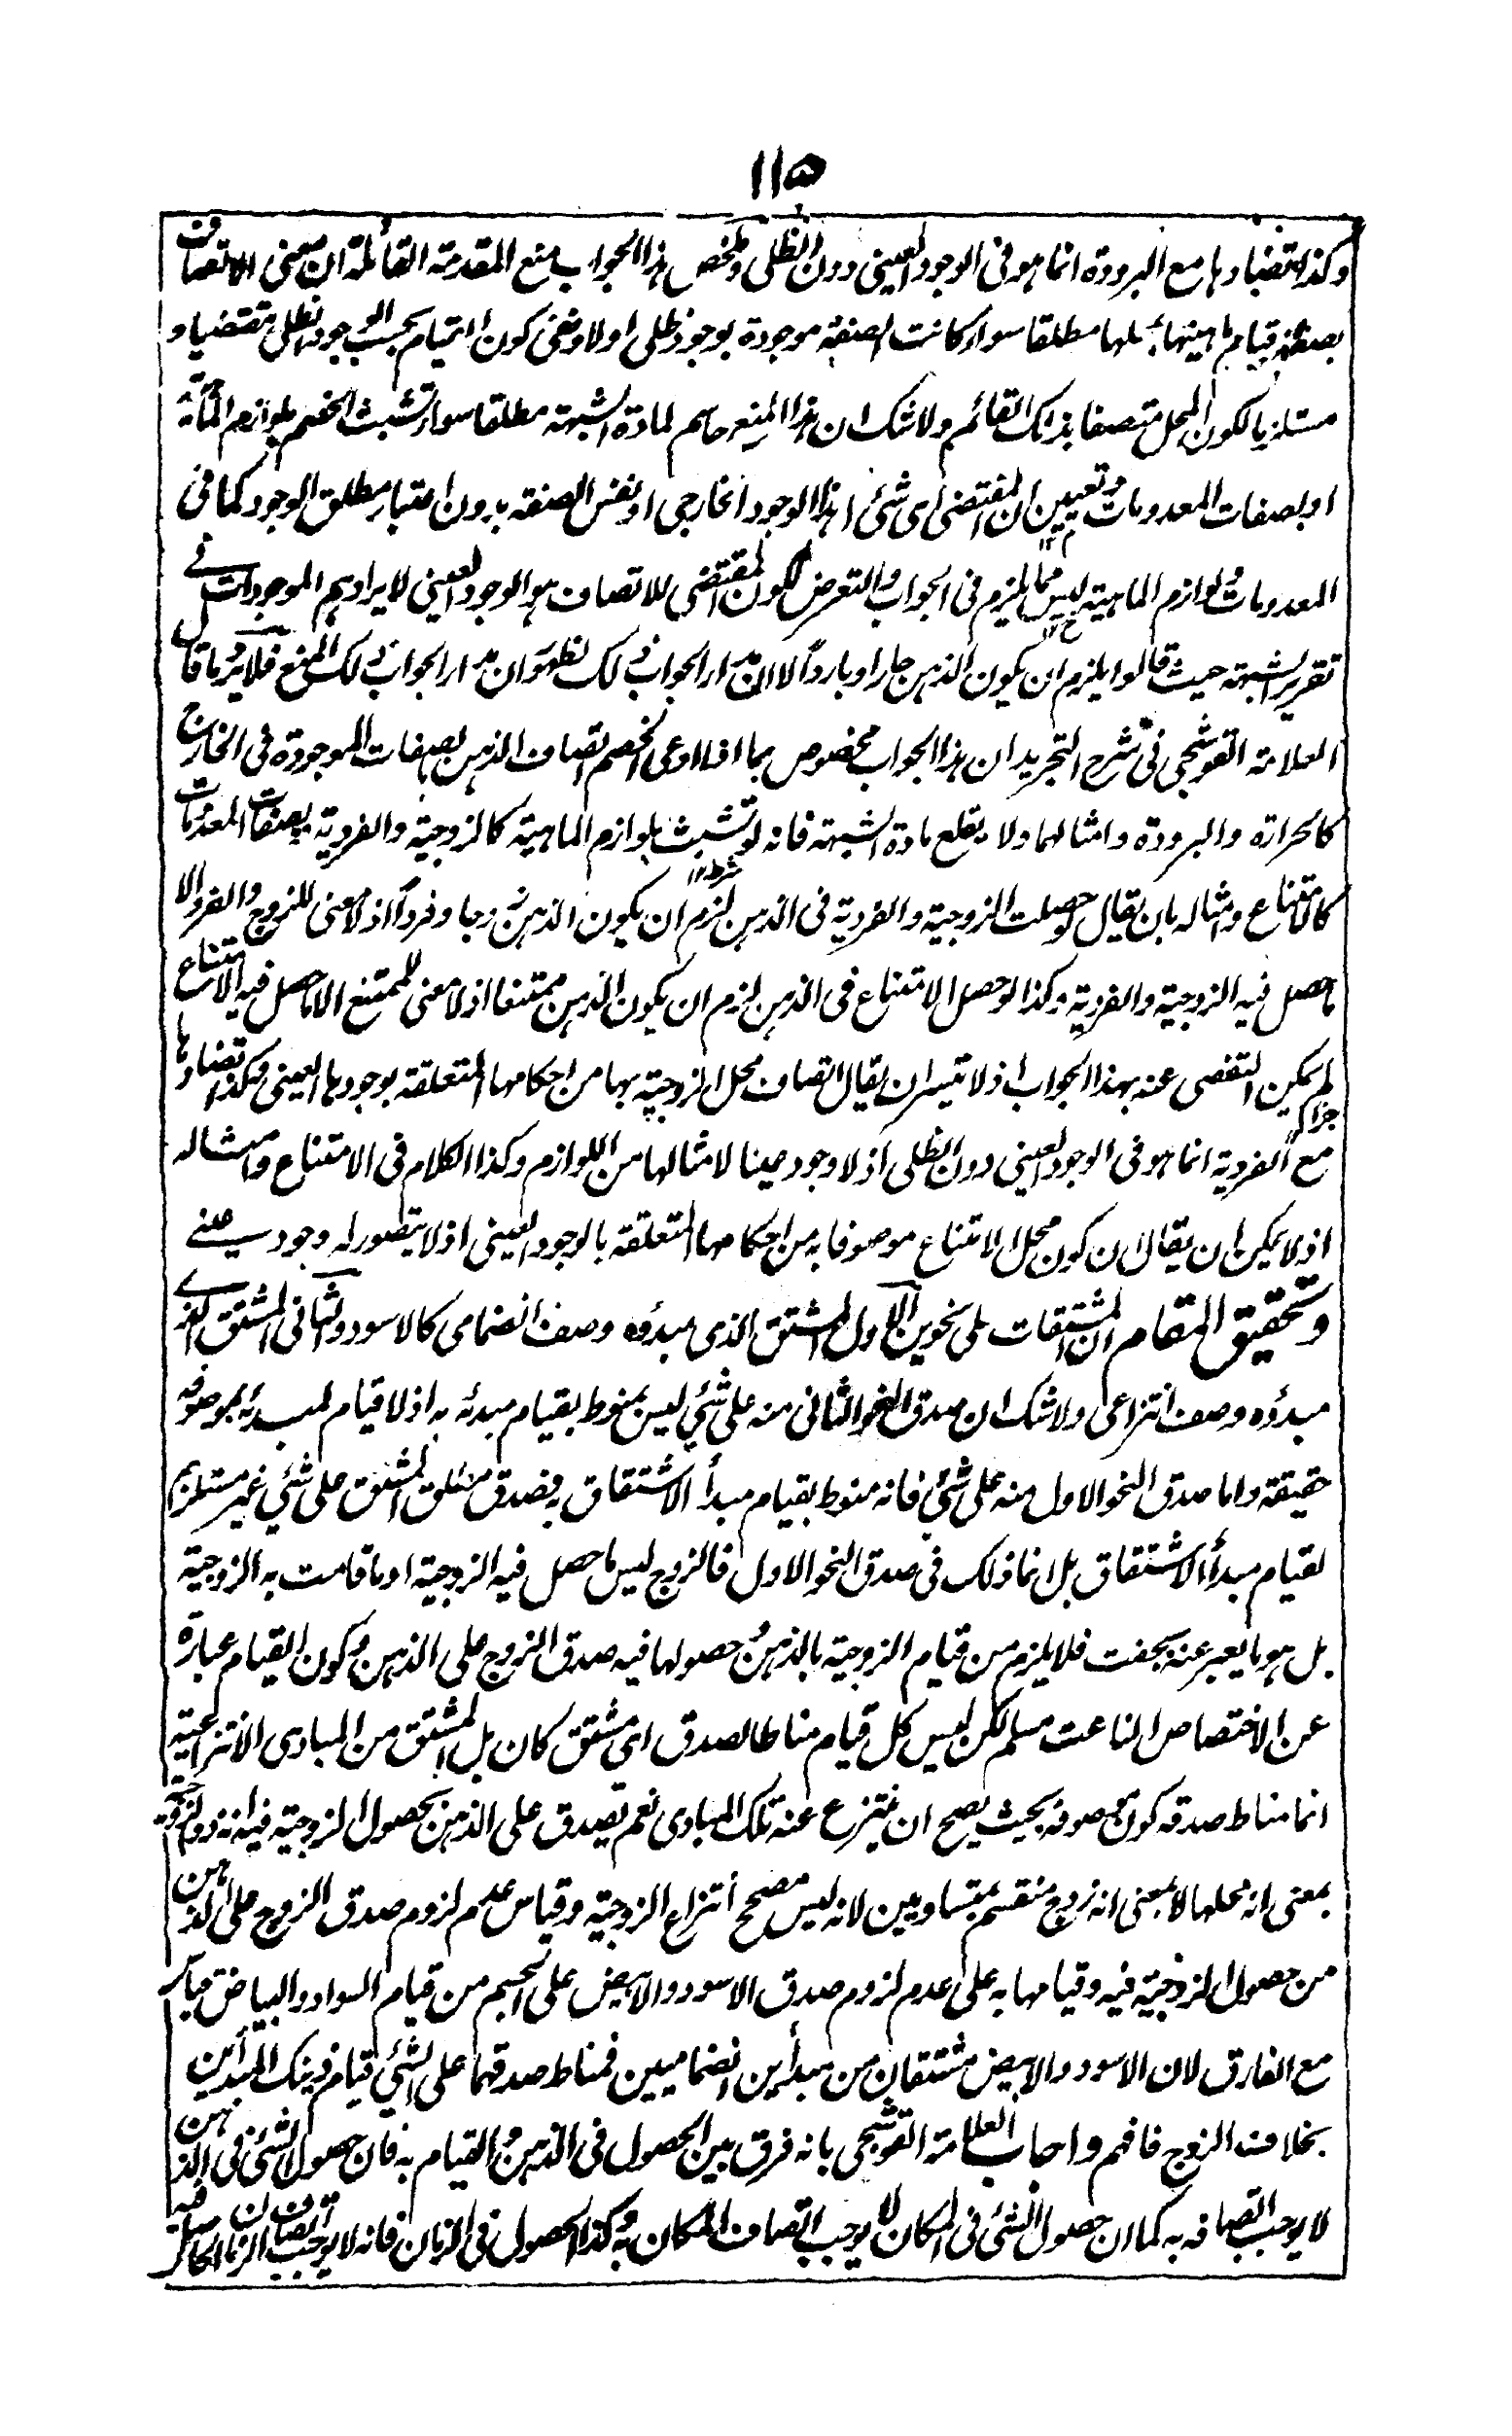 ١١٥
وكذا تضادها مع البرودة انما هو فى الوجود العينى دون الظلى وملخص هذا الجواب منع المقدمة القائلة ان معنى الاتصاف
بصفة قيام ماهيتها بمحلها مطلقا سواء كانت الصفة موجودة بوجود ظلى اولا ومنع كون القيام بحسب الوجود الظلى مقتضيا و
مستلزما لكون المحل متصفا بذلك القائم ولا شك ان هذا المنع حاسم لمادة الشبهة مطلقا سواء تشبث الخصم بلوازم الماهية
او بصفات المعدومات وتعيين ان المقتضى اى شئ اهذا الوجود الخارجى او نفس الصفة بدون اعتبار مطلق الوجود كما فى
المعدومات ولوازم الماهية ليس مما يلزم فى الجواب والتعرض لكون المقتضى للاتصاف هو الوجود العينى لايرادهم الموجودات فے
تقرير الشبهة حيث قالوا يلزم ان يكون الذهن حارا وباردا لا لان مدار الجواب ذلك لظهور ان مدار الجواب ذلك المنع فلا يرد ما قال
العلامة القوشجى فى شرح التجريد ان هذا الجواب مخصوص بما اذا ادعى الخصم اتصاف الذهن بصفات الموجودة فى الخارج
كالحرارة والبرودة وامثالهما ولا يقلع مادة الشبهة فانه لو تشبث بلوازم الماهية كالزوجية والفردية بصفات المعدومات
كالامتناع وامثاله بان يقال لو حصلت الزوجية والفردية فى الذهن لزم ان يكون الذهن زوجا وفردا اذ لا معنى للزوج والفرد الا
ما حصل فيه الزوجية والفردية وكذا لو حصل الامتناع فى الذهن لزم ان يكون الذهن ممتنعا اذ لا معنى للممتنع الا ما حصل فيه الامتناع
لم يمكن التفصى عنه بهذا الجواب اذ لا تيسر ان يقال اتصاف محل الزوجية بها من احكامها المتعلقة بوجودها العينى وكذا تضادها
مع الفردية انما هو فى الوجود العينى دون الظلى اذ لا وجود عينا لامثالها من اللوازم وكذا الكلام فى الامتناع وامثاله
اذ لا يمكن ان يقال ان كون محل الامتناع موصوفا به من احكامها المتعلقة بالوجود العينى اذ لا يتصور له وجود عينے
وتحقيق المقام ان المشتقات على نحوين الاول المشتق الذى مبدؤه وصف انضمامى كالاسود والثانى المشتق الذے
مبدؤه وصف انتزاعى ولا شك ان صدق النحو الثانى منه على شئ ليس بمنوط بقيام مبدئه به اذ لا قيام لمبدئه بموصوفه
حقيقة واما صدق النحو الاول منه على شئ فانه منوط بقيام مبدأ الاشتقاق به فصدق مطلق المشتق على شئ غير مستلزم
لقيام مبدأ الاشتقاق بل انما ذلك فى صدق النحو الاول فالزوج ليس ما حصل فيه الزوجية او ما قامت به الزوجية
بل هو ما يعبر عنه بجفت فلا يلزم من قيام الزوجية بالذهن و حصولها فيه صدق الزوج على الذهن وكون القيام عبارة
عن الاختصاص الناعت مسلم لكن ليس كل قيام مناطا لصدق اى مشتق كان بل المشتق من المبادى الانتزاعية
انما مناط صدقه كون موصوفه بحيث يصح ان ينتزع عنه تلك المبادى نعم يصدق على الذهن بحصول الزوجية فيه انه ذو الزوجية
بمعنى انه محلها لا بمعنى انه زوج منقسم بمتساويين لانه ليس مصحح انتزاع الزوجية وقياس عدم لزوم صدق الزوج على الذهن
من حصول الزوجية فيه وقيامها به على عدم لزوم صدق الاسود والابيض على الجسم من قيام السواد والبياض قياس
مع الفارق لان الاسود والابيض مشتقان من مبدأين انضماميين فمناط صدقهما على الشئ قيام ذينك المبدأين
بخلاف الزوج فافهم واجاب العلامة القوشجى بانه فرق بين الحصول فى الذهن والقيام به فان حصول الشئ فى الذهن
لا يوجب اتصافه به كما ان حصول الشئ فى المكان لا يوجب اتصاف المكان به وكذا الحصول فى الزمان فانه لا يوجب اتصاف الزمان